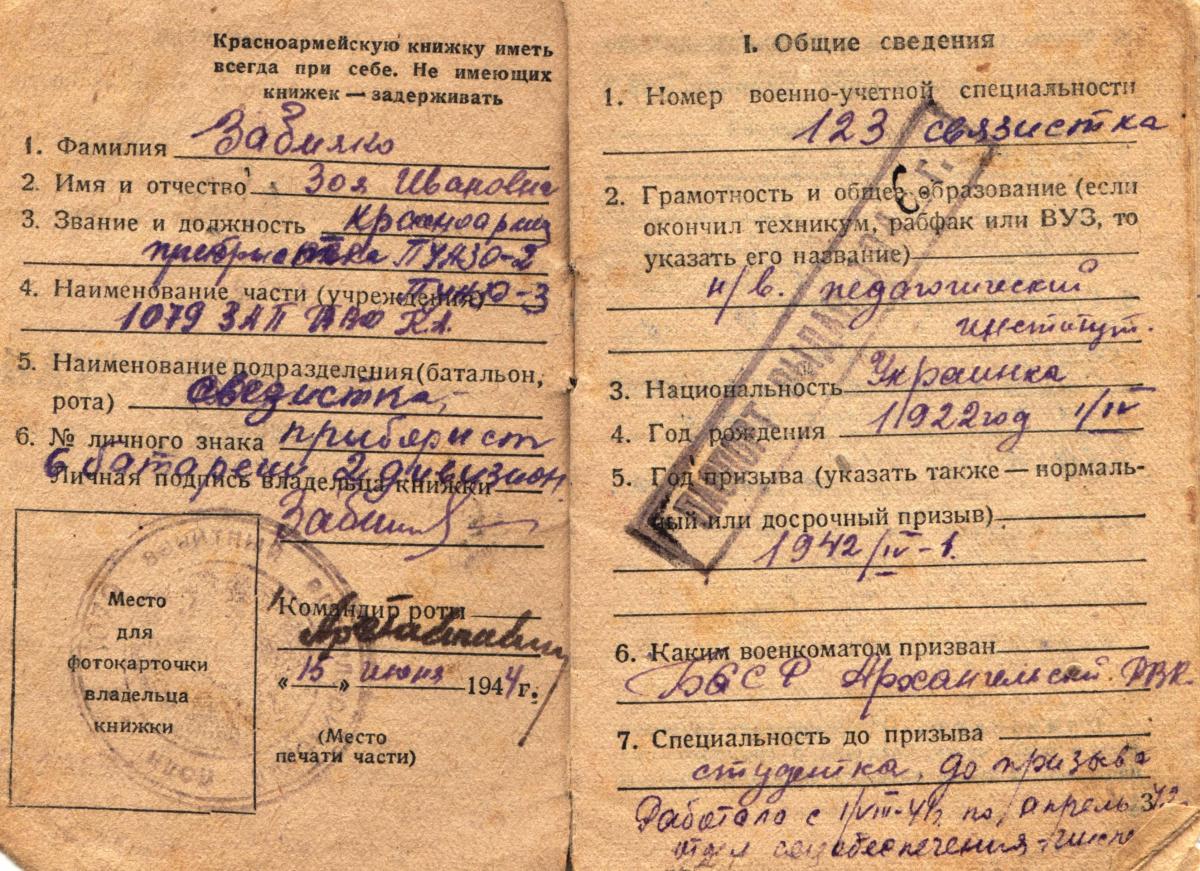 Красноармейскую книжку иметь
всегда при себе. Не имеющих
книжек — задерживать
1. Фамилия Забияко
2. Имя и отчество Зоя Ивановна
3. Звание и должность красноарм
прибристка ПУАЗО-2
ПУАЗО-3
4. Наименование части (учреждения)
1079 ЗАП К.А.
5. Наименование подразделения (батальон,
рота) связистка,
6. № личного знака приборист
6 батареи 2 дивизион.
Личная подпись владельца книжки
Место
для
фотокарточки
владельца
книжки
Командир роты
«15» июня 1944 г.
(Место
печати части)
I. Общие сведения
1. Номер военно-учетной специальности
123 связистка
2. Грамотность и общее образование (если
окончил техникум, рабфак или ВУЗ, то
указать его название)
н/в. педагогический
институт.
3. Национальность Украинка
4. Год рождения 1922 год 1/IV
5. Год призыва (указать также — нормаль-
ный или досрочный призыв)
1942/IV-1.
6. Каким военкоматом призван
БАССР Архангельский РВК.
7. Специальность до призыва
студентка, до призыва
Работала с 1/VIII-41 по апрель 42
3
отдел соцобеспечения
ПАСПОРТ